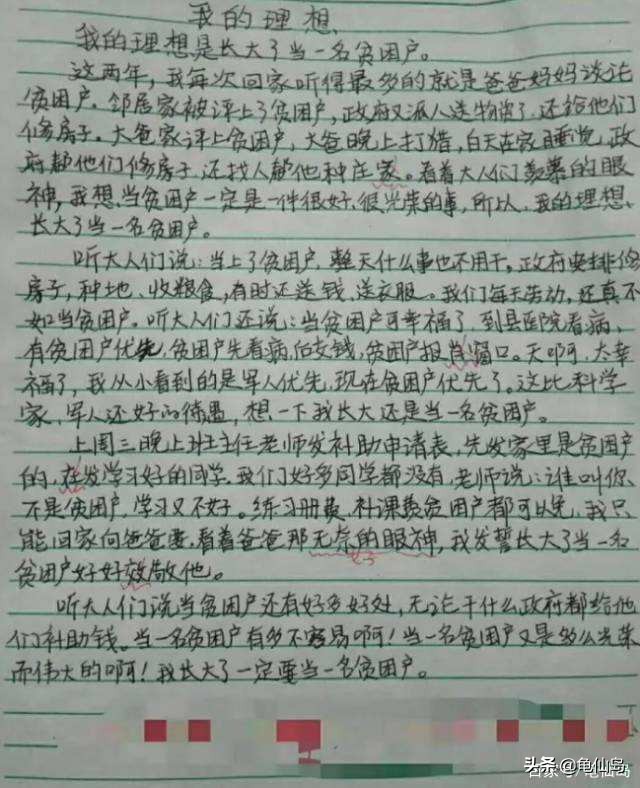 我的理想
我的理想是长大了当一名贫困户。
这两年，我每次回家听得最多的就是爸爸妈妈谈论
贫困户。邻居家被评上了贫困户，政府又派人送物资了，还给他们
修房子。大爸家评上贫困户，大爸晚上打猎，白天在家睡觉，政
府都他们修房子，还找人都他种庄家。看着大人们羡慕的眼
神，我想，当贫困户一定是一件很好，很光荣的事，所以，我的理想
长大了当一名贫困户。
听大人们说：当上了贫困户，整天什么事也不用干。政府安排修
房子，种地、收粮食，有时还送钱、送衣服。我们每天劳动，还真不
如当贫困户。听大人们还说：当贫困户可幸福了，到县医院看病，
有贫困户优先，贫困户先看病，后交钱，贫困户报肖窗口。天啊，太幸
福了，我从小看到的是军人优先，现在贫困户优先了。这比科学
家，军人还好的待遇，想一下我长大还是当一名贫困户。
上周三晚上班主任老师发补助申请表，先发家里是贫困户
的，在发学习好的同学，我们好多同学都没有，老师说：谁叫你
不是贫困户，学习又不好。练习册费，补课费贫困户都可以免，我只
能回家向爸爸要，看着爸爸那无奈的眼神，我发誓长大了当一名
贫困户好好效敬他。
听大人们说当贫困户还有好多好处，无论干什么政府都给他
们补助钱。当一名贫困户有多不容易啊！当一名贫困户又是多么光荣
而伟大的啊！我长大了一定要当一名贫困户。
头条@龟仙岛